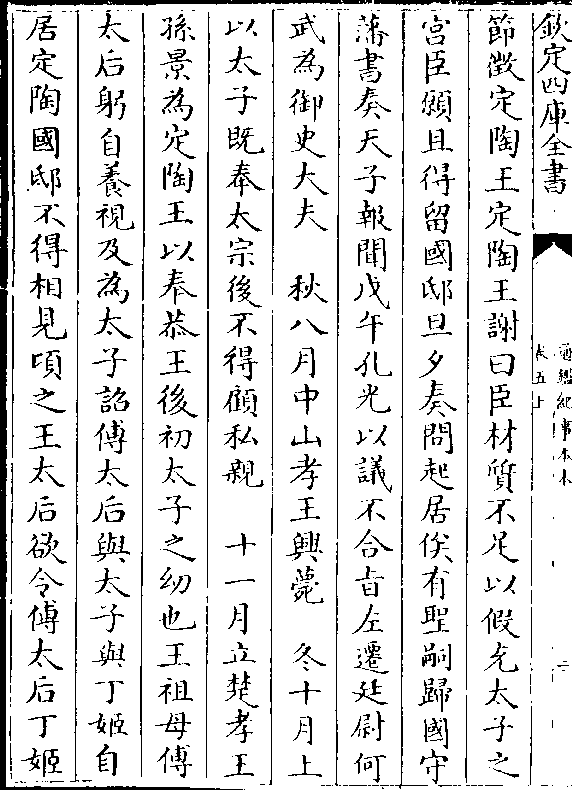 欽定四庫全書
通鑑紀事本末
卷五上
節徵定陶王定陶王謝曰臣材質不足以假充太子之
宮臣願且得留國邸旦夕奏問起居俟有聖嗣歸國守
藩書奏天子報聞戊午孔光以議不合旨左遷廷尉何
武為御史大夫　秋八月中山孝王興薨　冬十月上
以太子既奉太宗後不得顧私親　十一月立楚孝王
孫景為定陶王以奉恭王後初太子之幼也王祖母傅
太后躬自養視及為太子詔傅太后與太子與丁姬自
居定陶國邸不得相見頃之王太后欲令傅太后丁姬